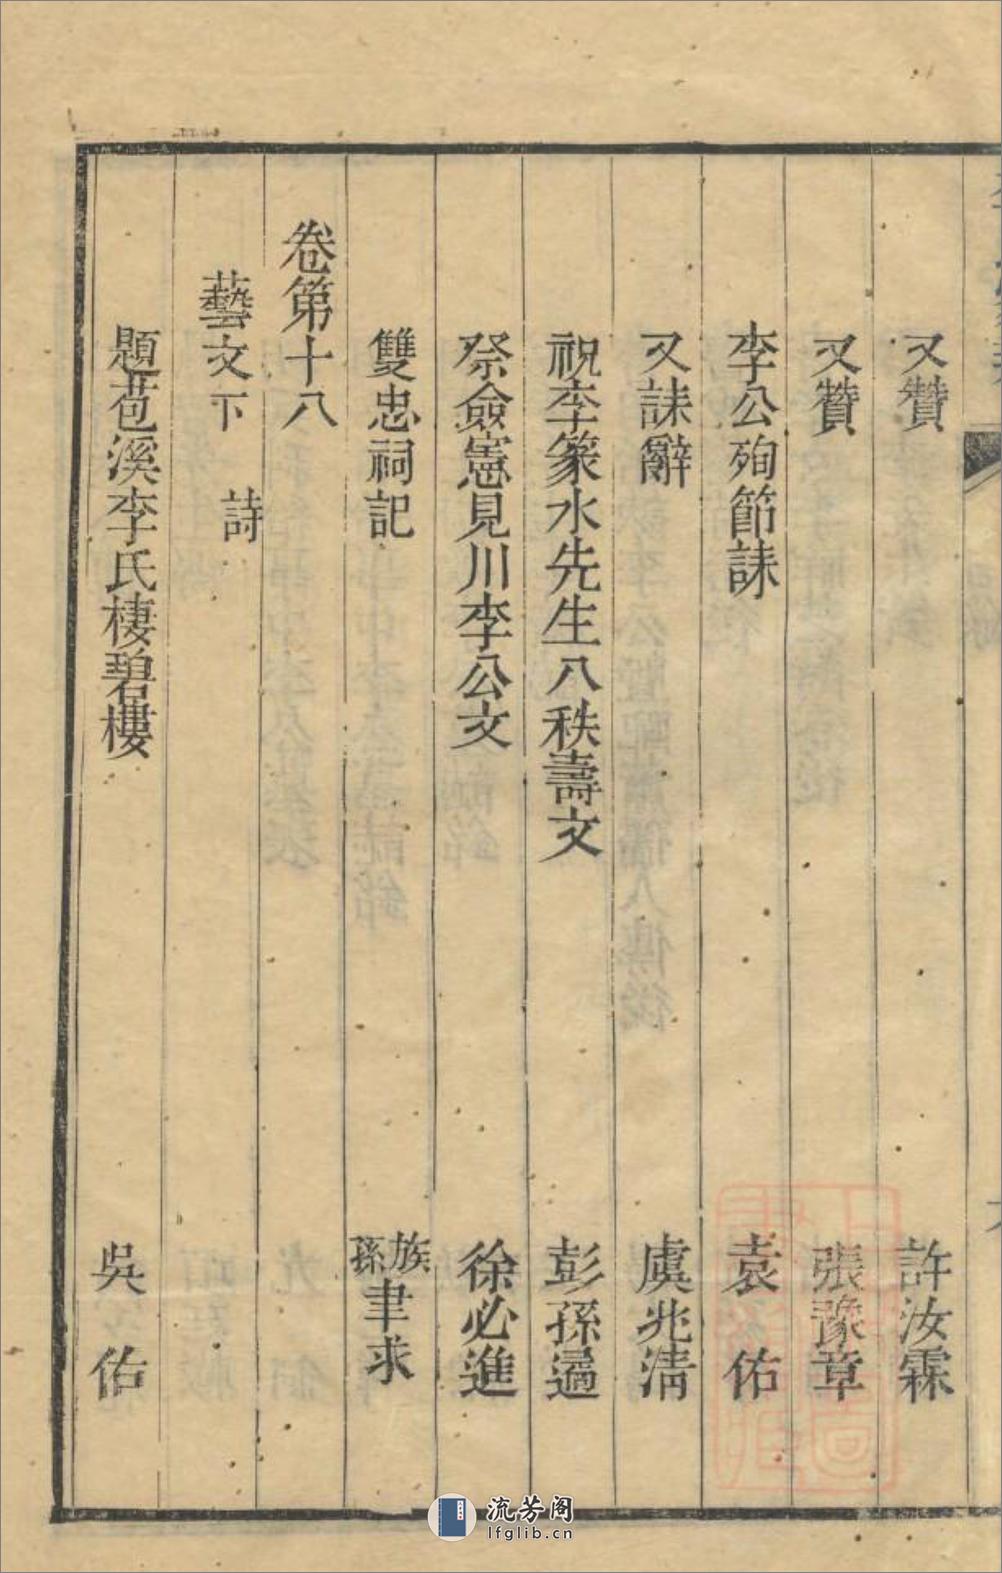 又贊　許汝霖
又贊　張豫章
李公殉節誄　袁佑
又誄辭　虞兆淸
祝李篆水先生八秩壽文　彭孫遹
祭僉憲見川李公文　徐必進
雙忠祠記　族孫聿求
卷第十八
藝文下　詩
題苞溪李氏棲碧樓　吳佑
流芳阁
lfglib.cn